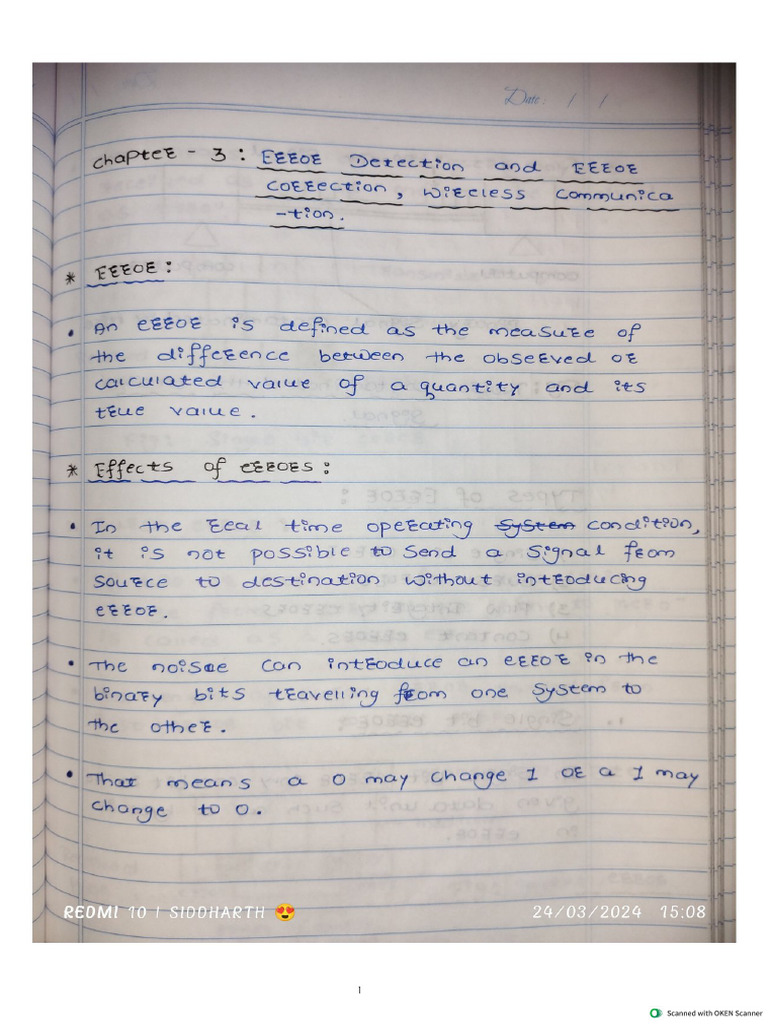 Date: / /
Chapter - 3 : Error Detection and Error
Correction, Wireless Communica
-tion.
* Error :
• An error is defined as the measure of
the difference between the observed or
calculated value of a quantity and its
true value.
* Effects of errors :
• In the real time operating System condition,
it is not possible to Send a Signal from
source to destination without introducing
error.
• The noisae can introduce an error in the
binary bits travelling from one System to
the other.
• That means a 0 may change 1 or a 1 may
change to 0.
REDMI 10 | SIDDHARTH 😍
24/03/2024 15:08
1
Scanned with OKEN Scanner